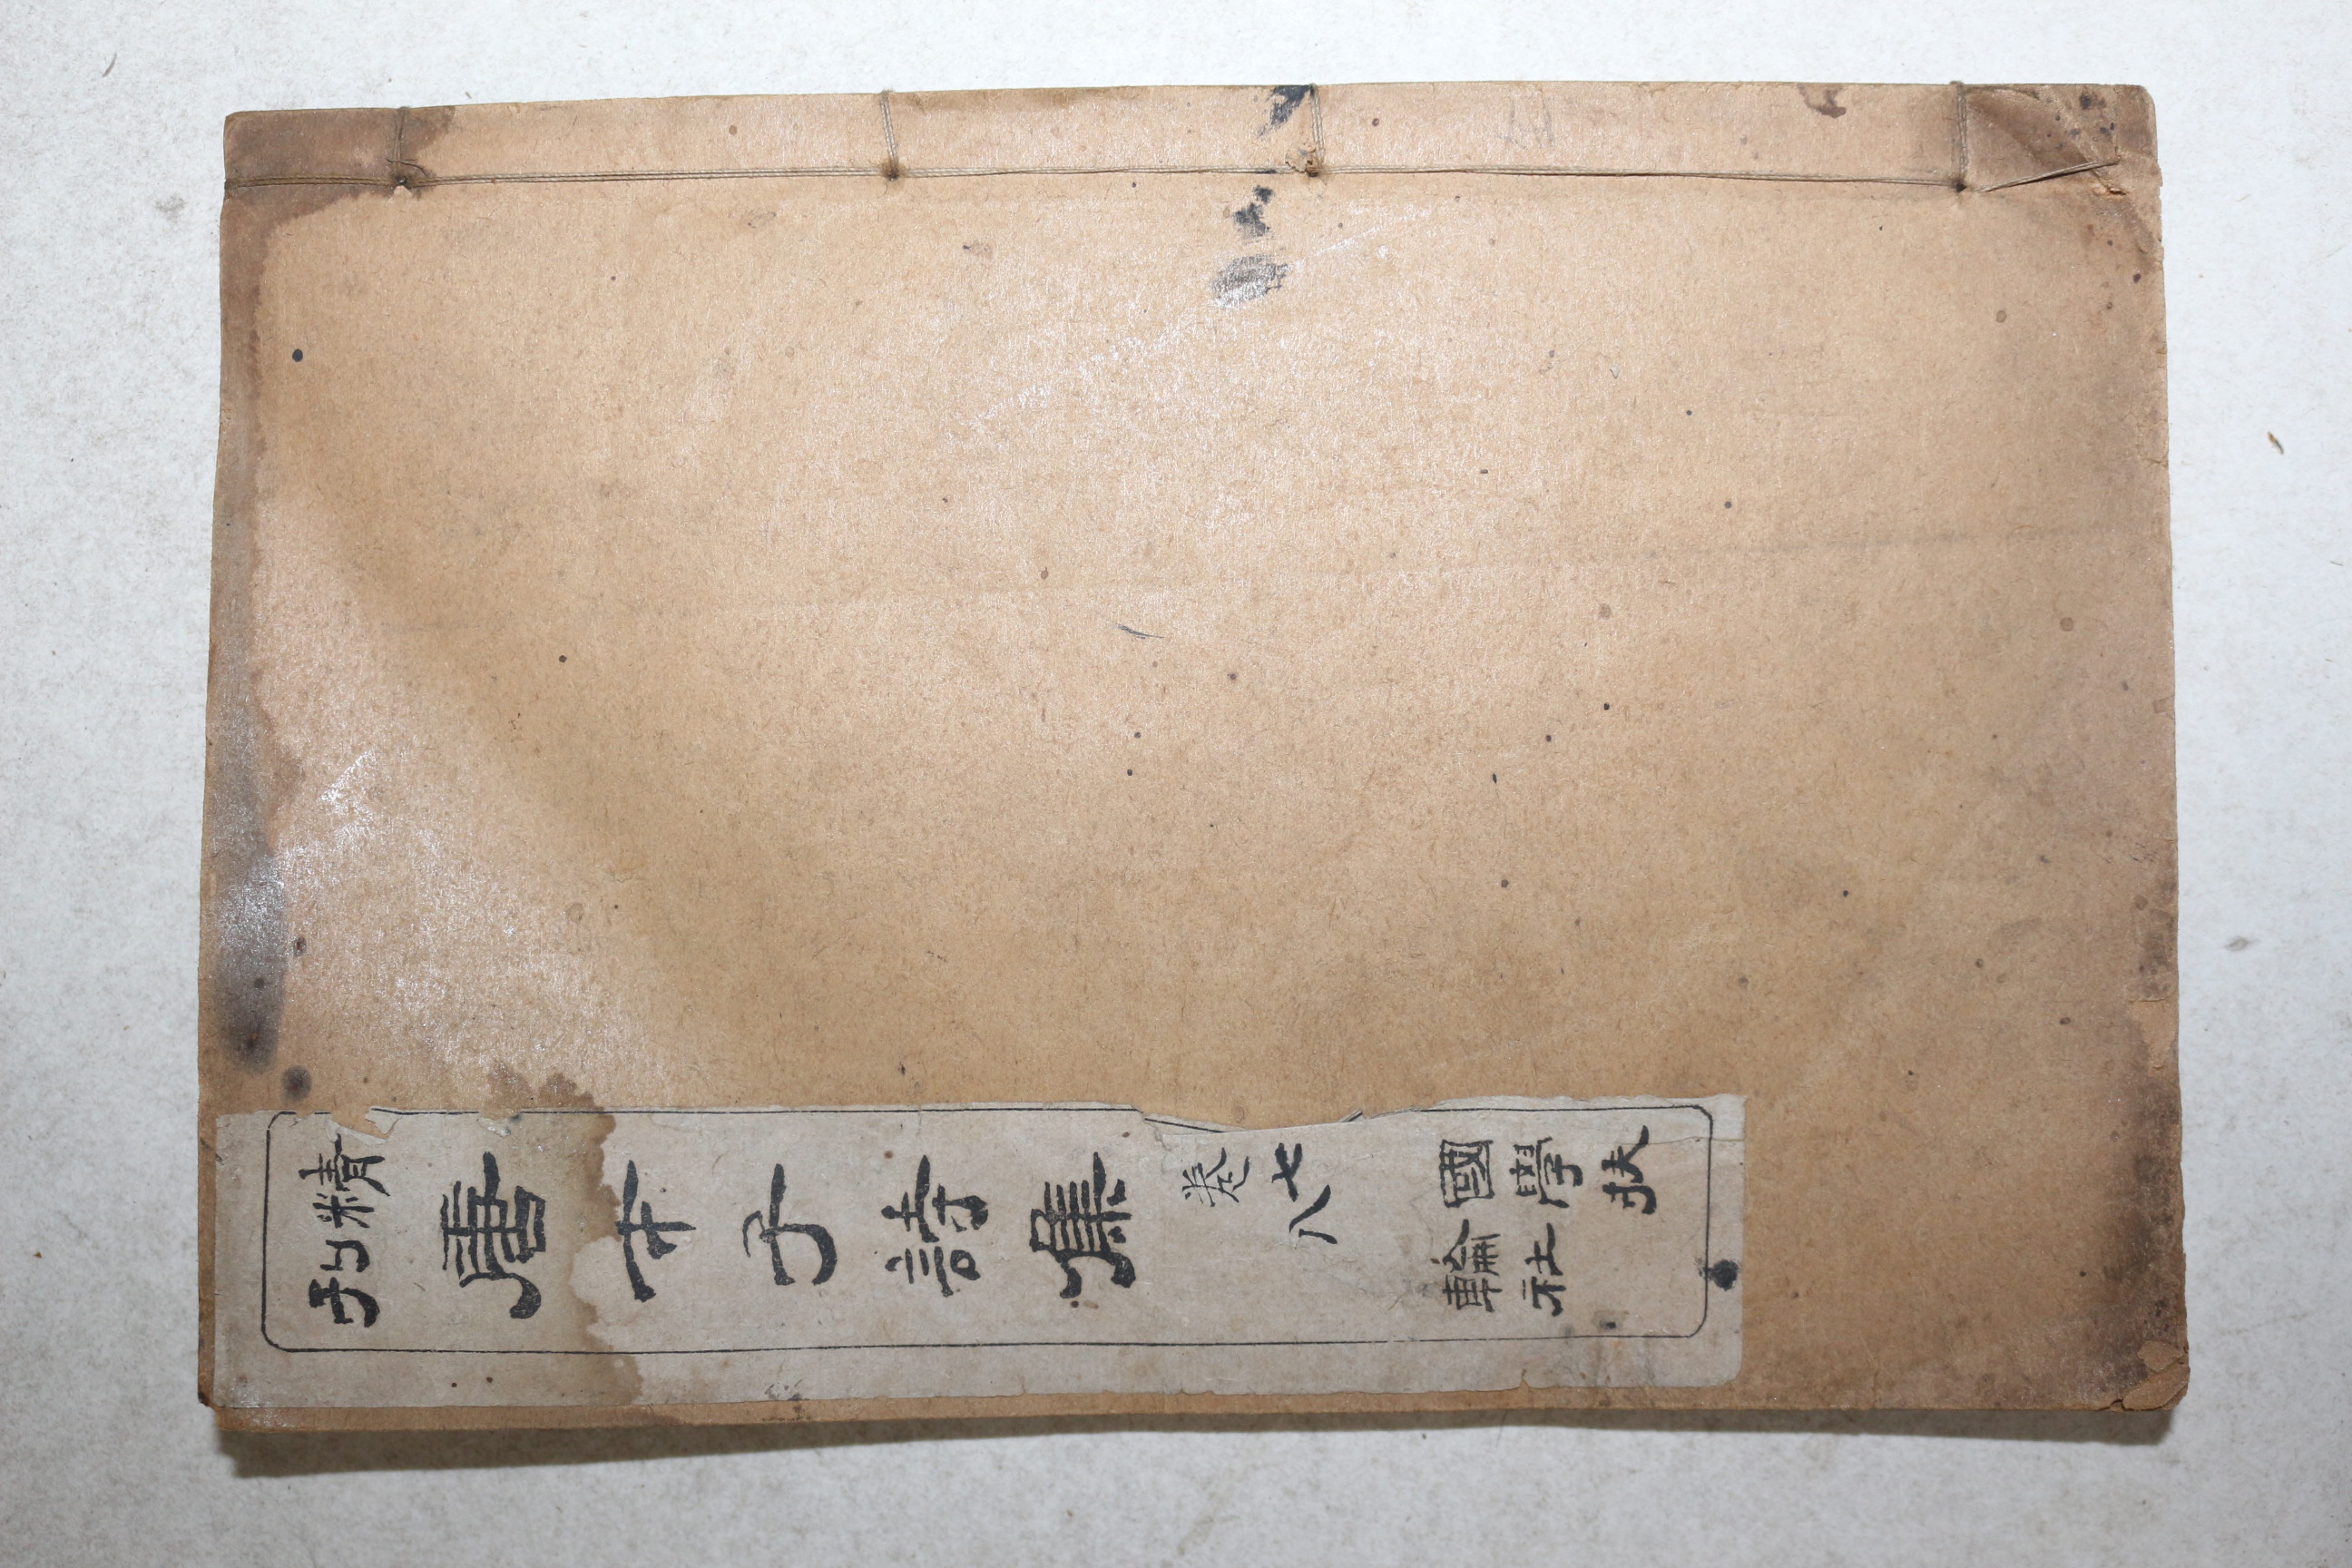 精刊
唐才子詩集
卷七八
國學扶
輪社